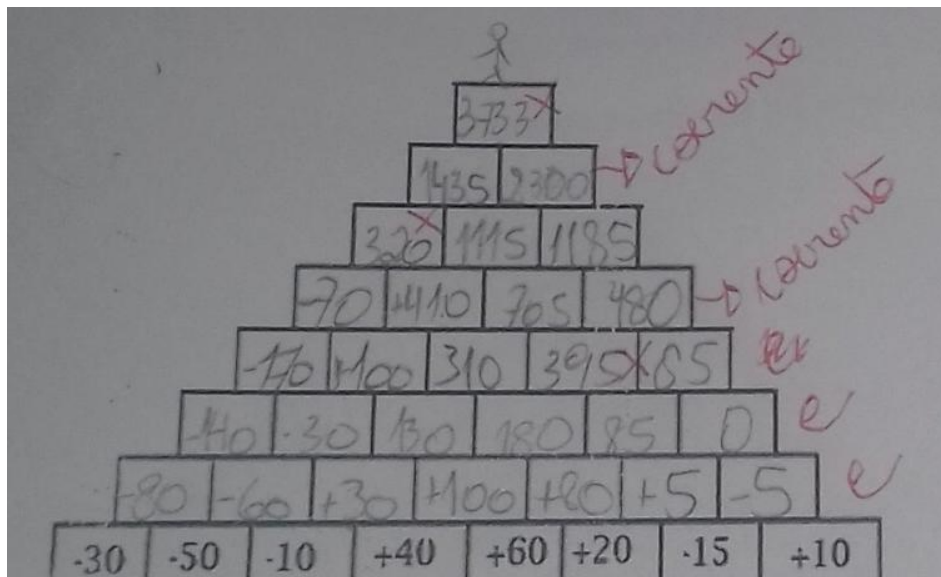 3733 x
1435 2300 → coerente
320 x 1115 1185
-70 +410 705 480 → coerente
-170 +100 310 395 x 85
-140 -30 130 180 85 0 e
-80 -60 +30 +100 +80 +5 -5 e
-30 -50 -10 +40 +60 +20 -15 +10